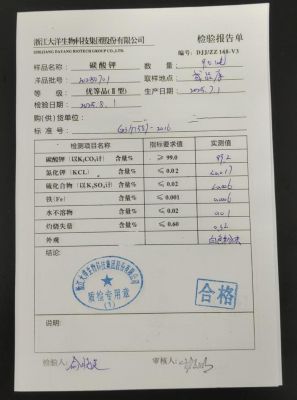 浙江大洋生物科技集团股份有限公司
ZHEJIANG DAYANG BIOTECH GROUP CO.,LTD
检验报告单
编号：DJJ/ZZ 168-V3
样品名称 碳酸钾 数量
样品批号 取样地点 成品库
等级 优等品(Ⅱ型) 生产日期 2025.7.1
检验日期 2025.8.1
购(供)货单位：
标准号 -2016
检测项目名称 指标要求值 实测值
碳酸钾（以K₂CO₃计） 含量% ≥ 99.0 99.2
氯化钾（KCL） 含量% ≤ 0.02
硫化合物（以K₂SO₄计） 含量% ≤ 0.02 0.006
铁(Fe) 含量% ≤ 0.001
水不溶物 含量% ≤ 0.02 0.01
灼烧失量 含量% ≤ 0.60 0.32
外观
结论：
浙江大洋生物科技集团股份有限公司
质检专用章
(1)
合格
说明：
检验人： 审核人：